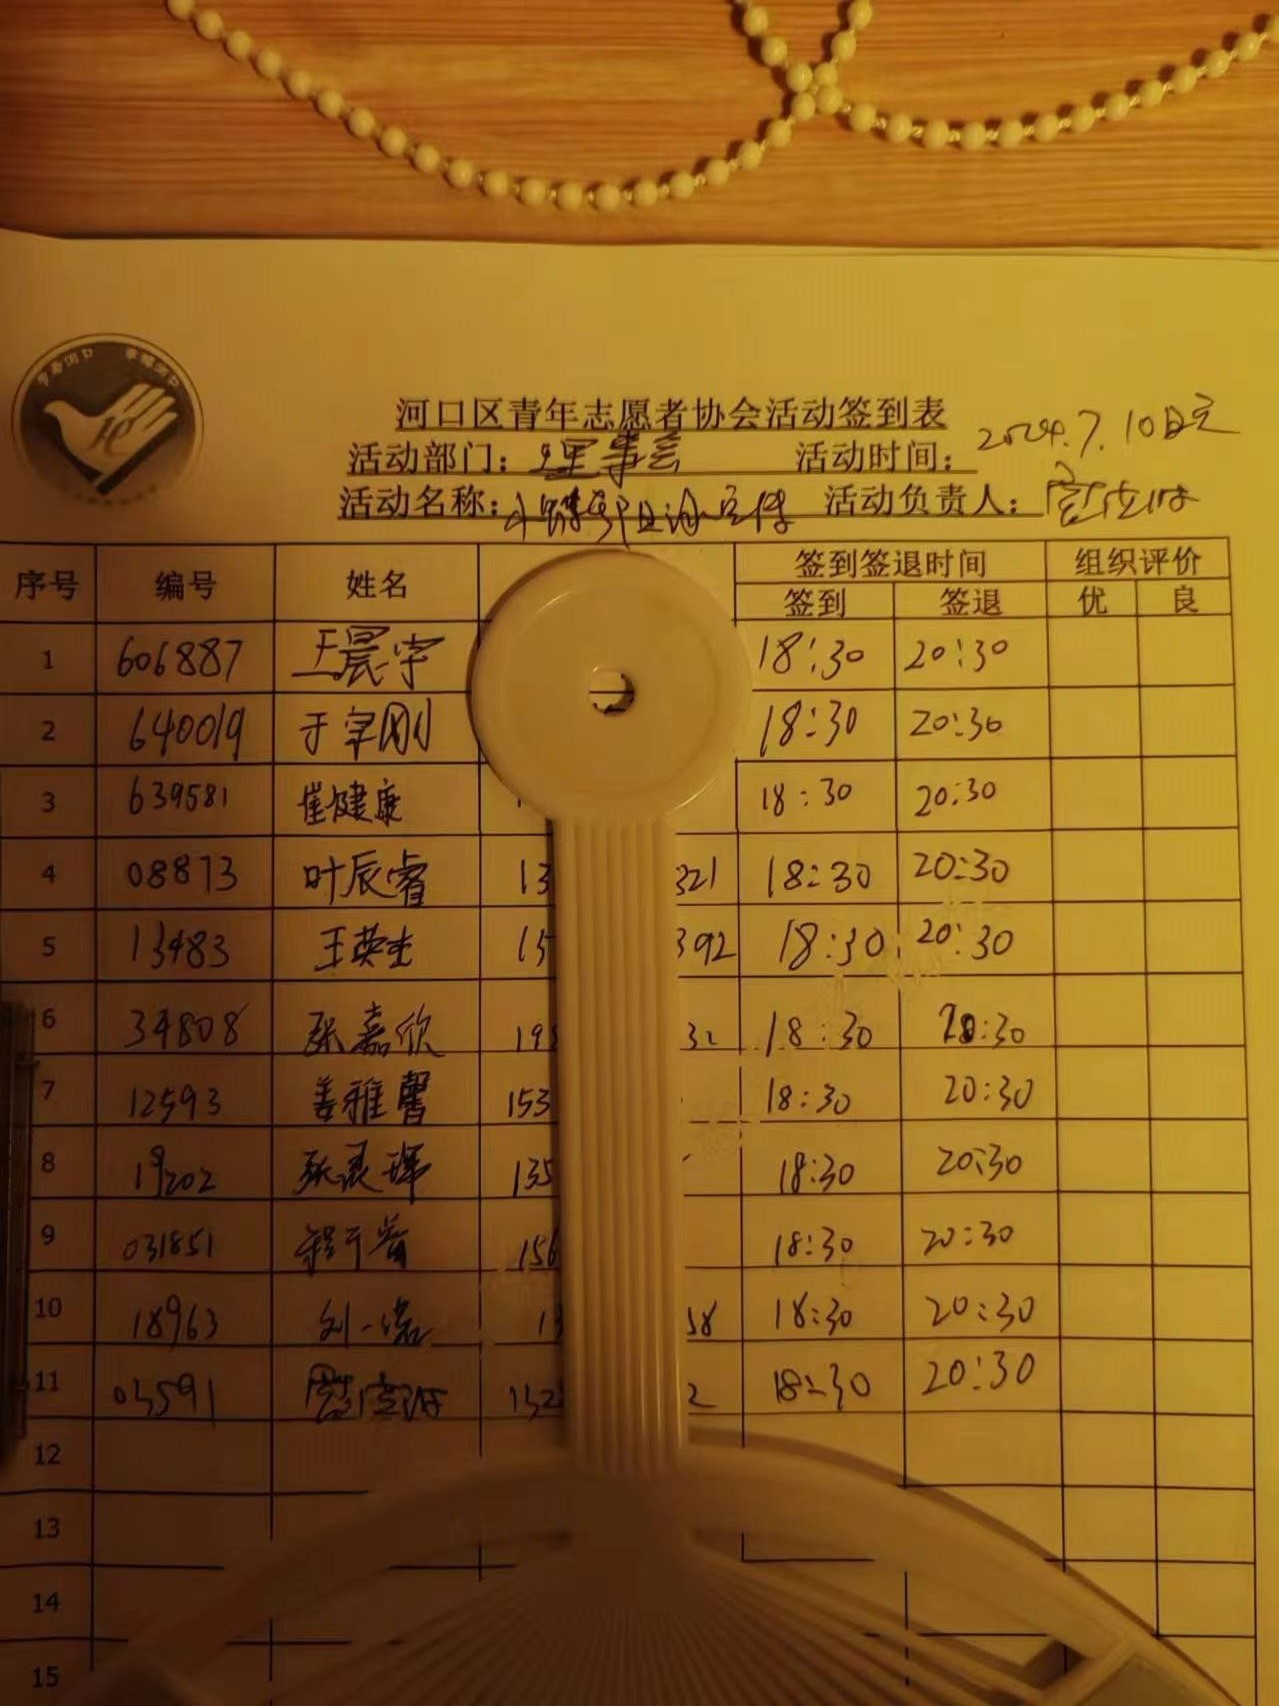 河口区青年志愿者协会活动签到表
活动部门：理事会 活动时间：2024.7.10日
活动名称： 活动负责人：
序号 编号 姓名 签到签退时间 组织评价
签到 签退 优 良
1 606887 王晨宇 18:30 20:30
2 640019 于宇刚 18:30 20:30
3 639581 崔健康 18:30 20:30
4 08873 叶辰睿 13 321 18:30 20:30
5 13483 王英杰 15 392 18:30 20:30
6 34808 张嘉欣 19 32 18:30 20:30
7 12593 姜雅馨 153 18:30 20:30
8 19202 135 18:30 20:30
9 031851 156 18:30 20:30
10 18963 刘一诺 13 58 18:30 20:30
11 03591 132 2 18:30 20:30
12
13
14
15